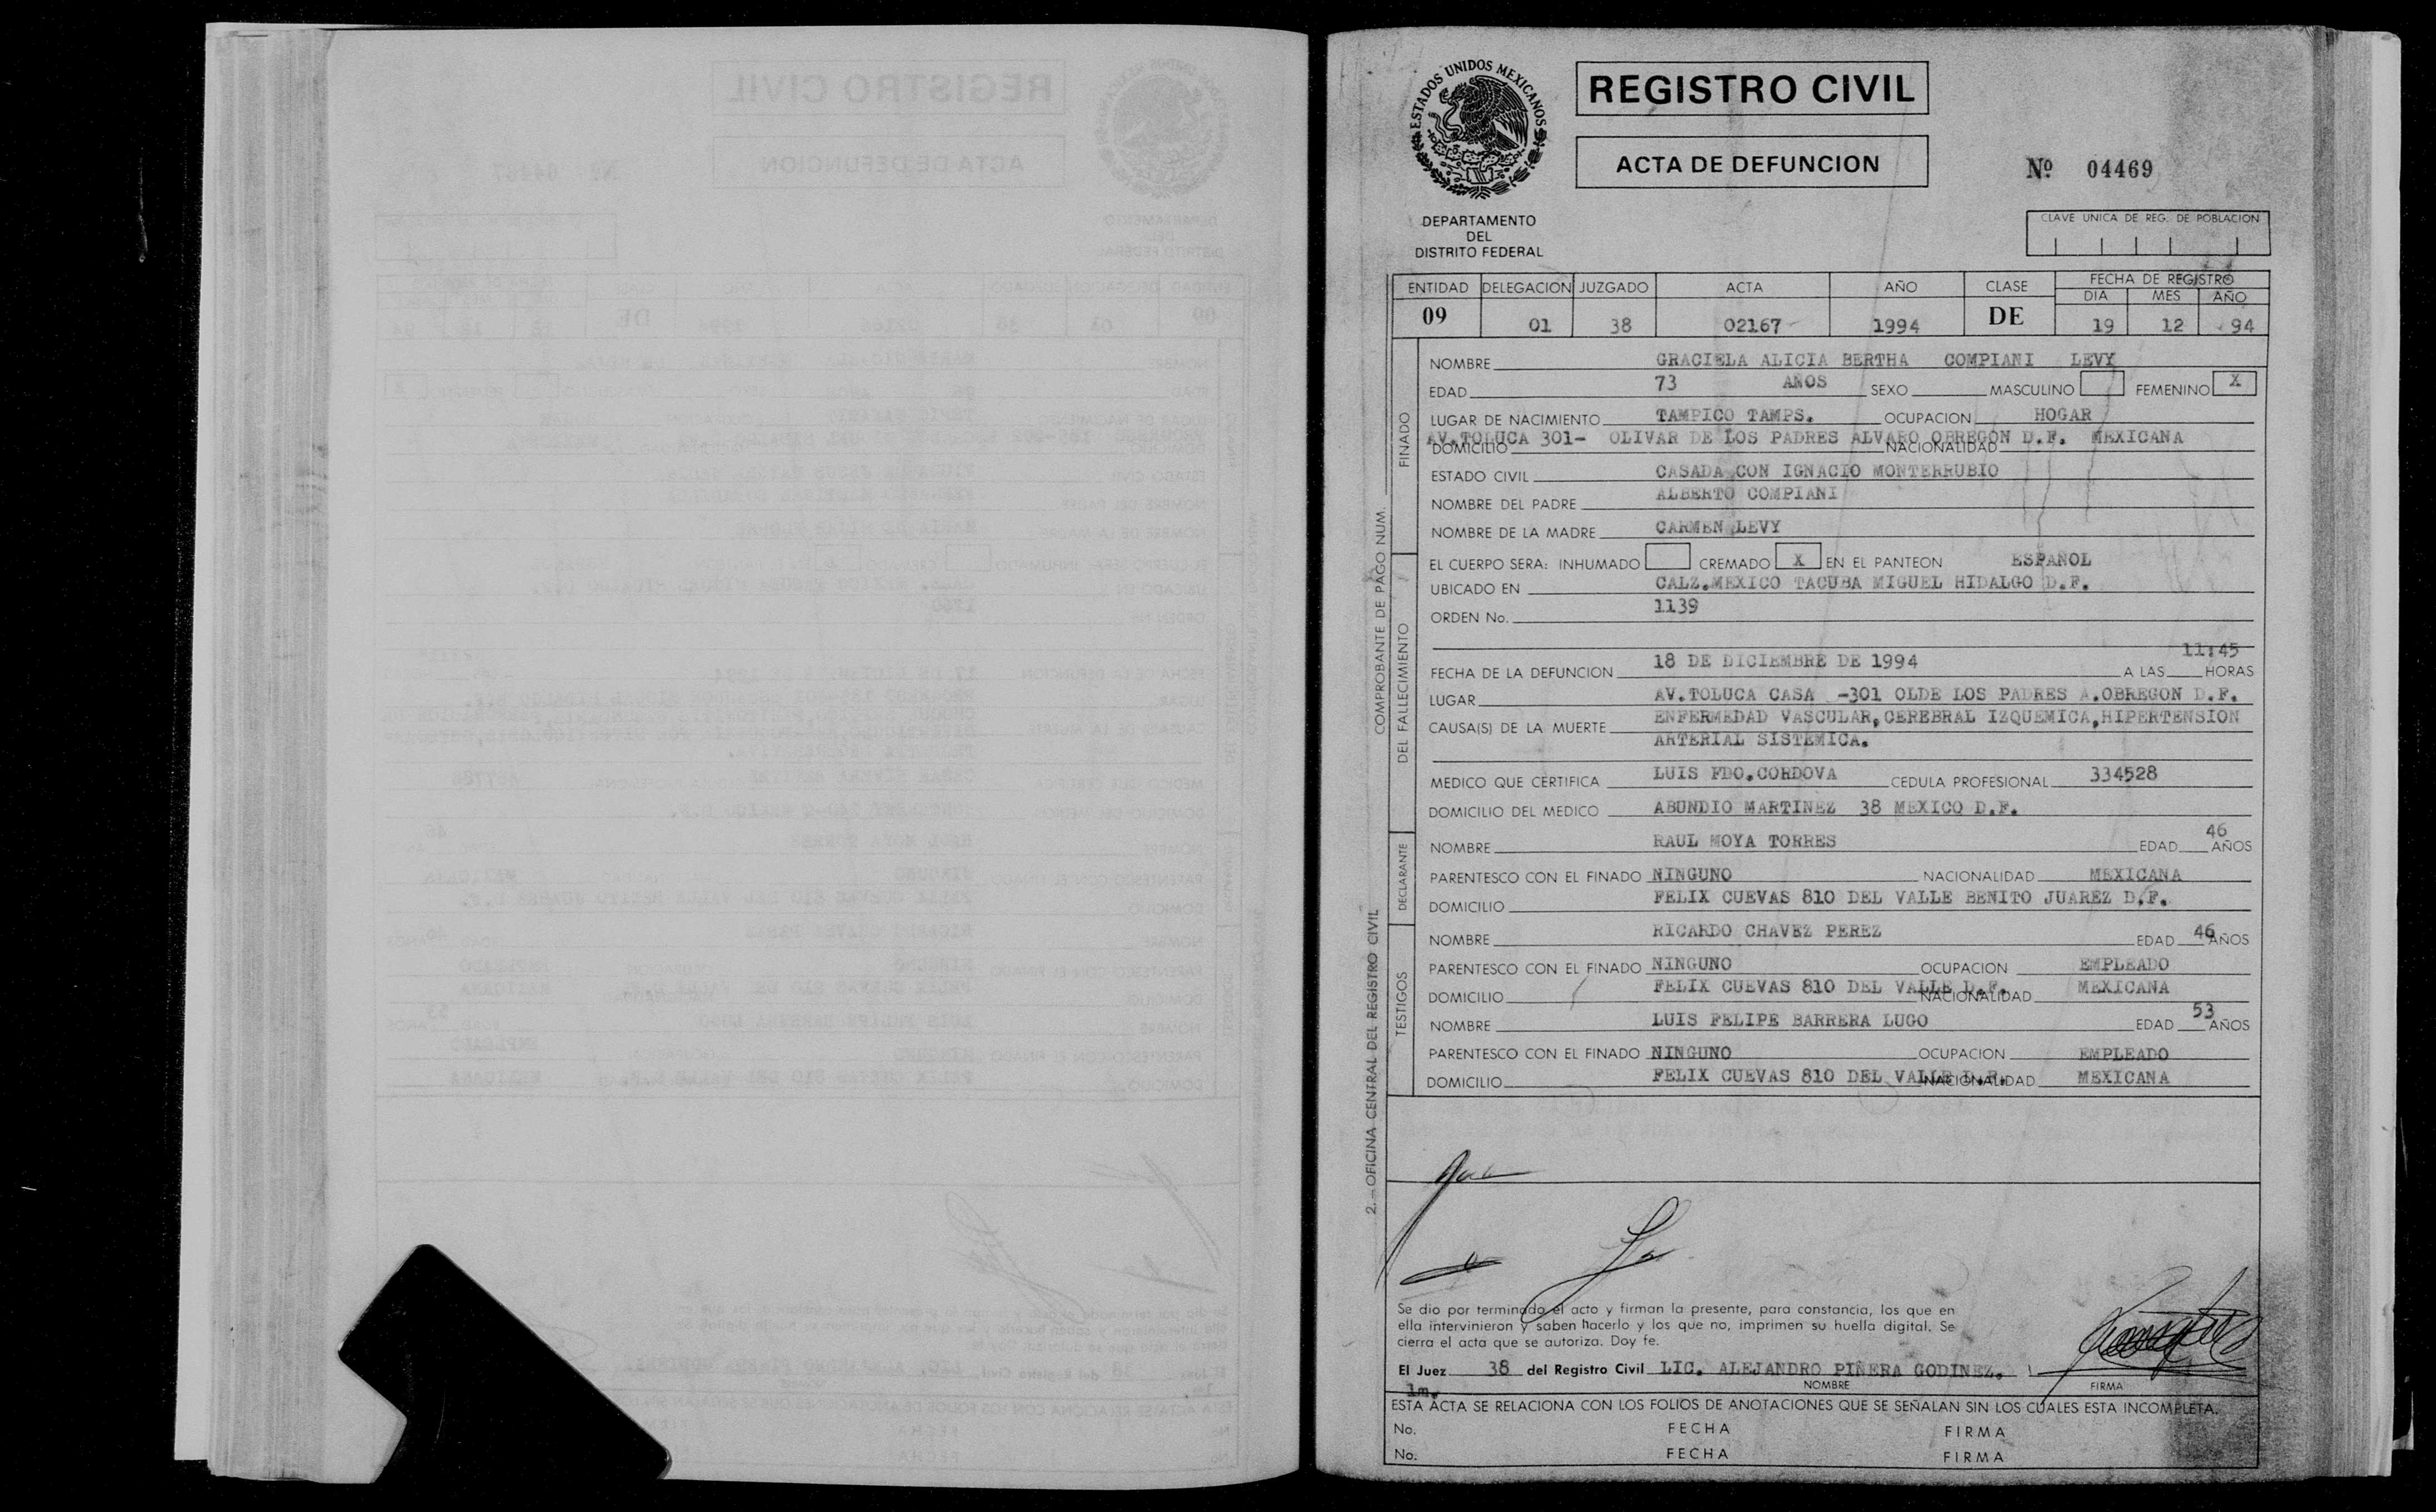 ESTADOS UNIDOS MEXICANOS
REGISTRO CIVIL
ACTA DE DEFUNCION
Nº 04469
DEPARTAMENTO
DEL
DISTRITO FEDERAL
CLAVE UNICA DE REG. DE POBLACION
ENTIDAD DELEGACION JUZGADO ACTA AÑO CLASE FECHA DE REGISTRO
DIA MES AÑO
09 01 38 02167 1994 DE 19 12 94
FINADO
NOMBRE GRACIELA ALICIA BERTHA COMPIANI LEVY
EDAD 73 AÑOS SEXO MASCULINO FEMENINO X
LUGAR DE NACIMIENTO TAMPICO TAMPS. OCUPACION HOGAR
AV.TOLUCA 301- OLIVAR DE LOS PADRES ALVARO OBREGON D.F. MEXICANA
DOMICILIO NACIONALIDAD
ESTADO CIVIL CASADA CON IGNACIO MONTERRUBIO
NOMBRE DEL PADRE ALBERTO COMPIANI
NOMBRE DE LA MADRE CARMEN LEVY
DEL FALLECIMIENTO
EL CUERPO SERA: INHUMADO CREMADO X EN EL PANTEON ESPAÑOL
UBICADO EN CALZ.MEXICO TACUBA MIGUEL HIDALGO D.F.
ORDEN No. 1139
FECHA DE LA DEFUNCION 18 DE DICIEMBRE DE 1994 A LAS 11:45 HORAS
LUGAR AV.TOLUCA CASA -301 OLDE LOS PADRES A.OBREGON D.F.
CAUSA(S) DE LA MUERTE ENFERMEDAD VASCULAR,CEREBRAL IZQUEMICA,HIPERTENSION
ARTERIAL SISTEMICA.
MEDICO QUE CERTIFICA LUIS FDO.CORDOVA CEDULA PROFESIONAL 334528
DOMICILIO DEL MEDICO ABUNDIO MARTINEZ 38 MEXICO D.F.
DECLARANTE
NOMBRE RAUL MOYA TORRES EDAD 46 AÑOS
PARENTESCO CON EL FINADO NINGUNO NACIONALIDAD MEXICANA
DOMICILIO FELIX CUEVAS 810 DEL VALLE BENITO JUAREZ D.F.
TESTIGOS
NOMBRE RICARDO CHAVEZ PEREZ EDAD 46 AÑOS
PARENTESCO CON EL FINADO NINGUNO OCUPACION EMPLEADO
DOMICILIO FELIX CUEVAS 810 DEL VALLE D.F. NACIONALIDAD MEXICANA
NOMBRE LUIS FELIPE BARRERA LUGO EDAD 53 AÑOS
PARENTESCO CON EL FINADO NINGUNO OCUPACION EMPLEADO
DOMICILIO FELIX CUEVAS 810 DEL VALLE D.F. NACIONALIDAD MEXICANA
COMPROBANTE DE PAGO NUM.
2.—OFICINA CENTRAL DEL REGISTRO CIVIL
Se dio por terminado el acto y firman la presente, para constancia, los que en
ella intervinieron y saben hacerlo y los que no, imprimen su huella digital. Se
cierra el acta que se autoriza. Doy fe.
El Juez 38 del Registro Civil LIC. ALEJANDRO PIÑERA GODINEZ.
lm. NOMBRE FIRMA
ESTA ACTA SE RELACIONA CON LOS FOLIOS DE ANOTACIONES QUE SE SEÑALAN SIN LOS CUALES ESTA INCOMPLETA.
No. FECHA FIRMA
No. FECHA FIRMA